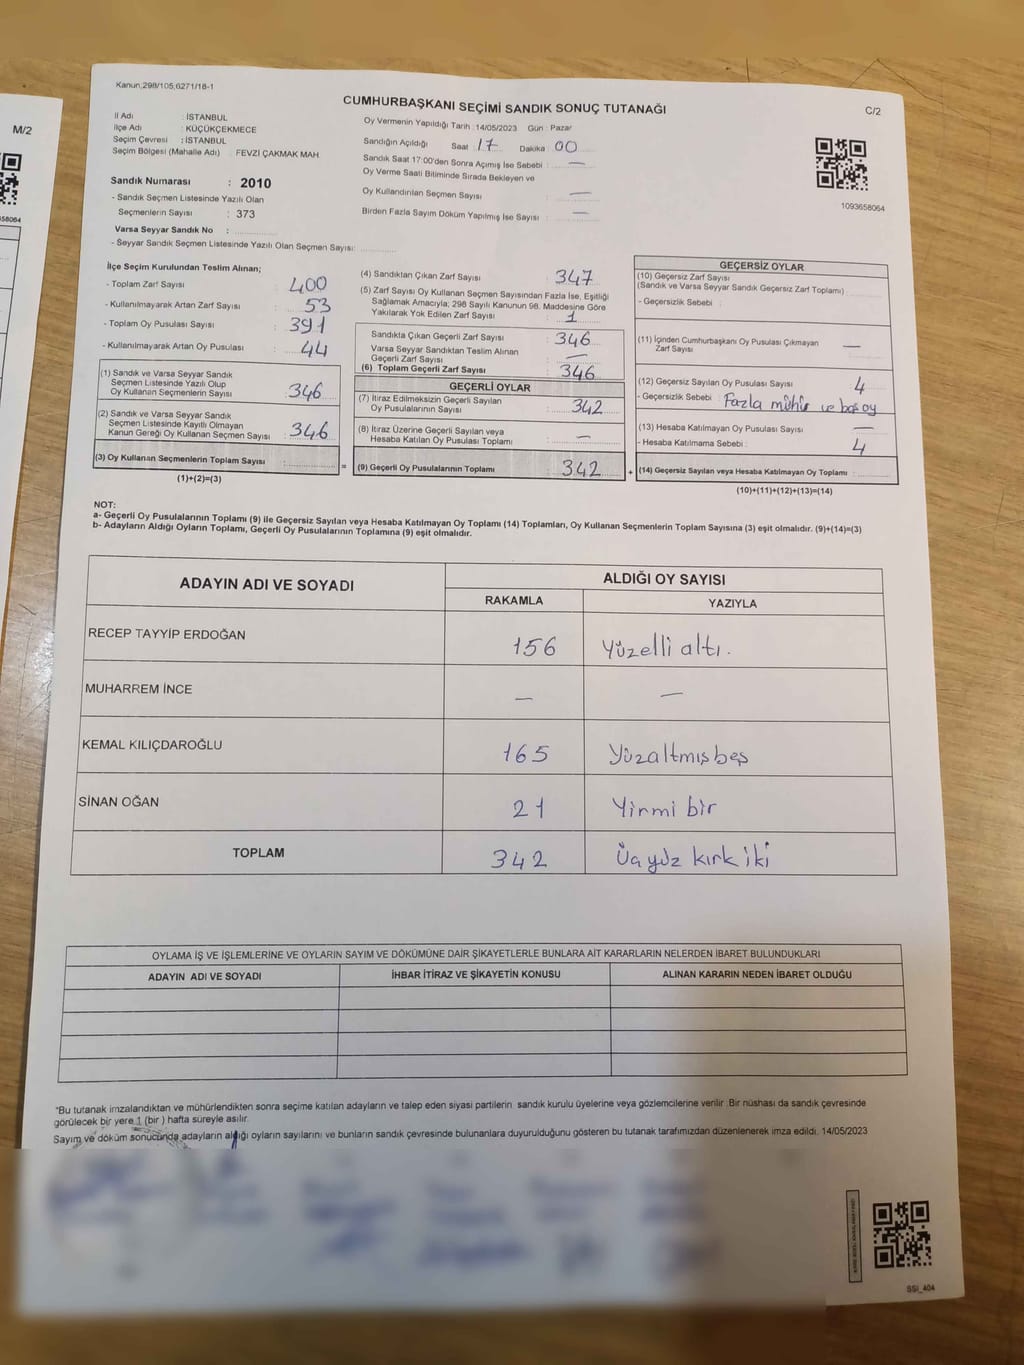 M/2
58064
Kanun;298/105,6271/18-1
C/2
CUMHURBAŞKANI SEÇİMİ SANDIK SONUÇ TUTANAĞI
İl Adı : İSTANBUL
İlçe Adı : KÜÇÜKÇEKMECE
Seçim Çevresi : İSTANBUL
Seçim Bölgesi (Mahalle Adı) : FEVZİ ÇAKMAK MAH.
Sandık Numarası : 2010
- Sandık Seçmen Listesinde Yazılı Olan
Seçmenlerin Sayısı : 373
Varsa Seyyar Sandık No :
- Seyyar Sandık Seçmen Listesinde Yazılı Olan Seçmen Sayısı:
Oy Vermenin Yapıldığı Tarih : 14/05/2023 Gün : Pazar
Sandığın Açıldığı Saat : 17 Dakika 00
Sandık Saat 17:00'den Sonra Açımış İse Sebebi : —
Oy Verme Saati Bitiminde Sırada Bekleyen ve
Oy Kullandırılan Seçmen Sayısı : —
Birden Fazla Sayım Döküm Yapılmış İse Sayısı : —
1093658064
İlçe Seçim Kurulundan Teslim Alınan;
- Toplam Zarf Sayısı : 400
- Kullanılmayarak Artan Zarf Sayısı : 53
- Toplam Oy Pusulası Sayısı : 391
- Kullanılmayarak Artan Oy Pusulası : 44
(1) Sandık ve Varsa Seyyar Sandık
Seçmen Listesinde Yazılı Olup
Oy Kullanan Seçmenlerin Sayısı : 346
(2) Sandık ve Varsa Seyyar Sandık
Seçmen Listesinde Kayıtlı Olmayan
Kanun Gereği Oy Kullanan Seçmen Sayısı : 346
(3) Oy Kullanan Seçmenlerin Toplam Sayısı :
(1)+(2)=(3)
(4) Sandıktan Çıkan Zarf Sayısı : 347
(5) Zarf Sayısı Oy Kullanan Seçmen Sayısından Fazla İse, Eşitliği
Sağlamak Amacıyla; 298 Sayılı Kanunun 98. Maddesine Göre
Yakılarak Yok Edilen Zarf Sayısı : 1
Sandıkta Çıkan Geçerli Zarf Sayısı : 346
Varsa Seyyar Sandıktan Teslim Alınan
Geçerli Zarf Sayısı : —
(6) Toplam Geçerli Zarf Sayısı : 346
GEÇERLİ OYLAR
(7) İtiraz Edilmeksizin Geçerli Sayılan
Oy Pusulalarının Sayısı : 342
(8) İtiraz Üzerine Geçerli Sayılan veya
Hesaba Katılan Oy Pusulası Toplamı : —
= (9) Geçerli Oy Pusulalarının Toplamı : 342
GEÇERSİZ OYLAR
(10) Geçersiz Zarf Sayısı
(Sandık ve Varsa Seyyar Sandık Geçersiz Zarf Toplamı)
- Geçersizlik Sebebi :
(11) İçinden Cumhurbaşkanı Oy Pusulası Çıkmayan
Zarf Sayısı : —
(12) Geçersiz Sayılan Oy Pusulası Sayısı : 4
- Geçersizlik Sebebi : Fazla mühür ve boş oy
(13) Hesaba Katılmayan Oy Pusulası Sayısı : —
- Hesaba Katılmama Sebebi : 4
+ (14) Geçersiz Sayılan veya Hesaba Katılmayan Oy Toplamı :
(10)+(11)+(12)+(13)=(14)
NOT:
a- Geçerli Oy Pusulalarının Toplamı (9) ile Geçersiz Sayılan veya Hesaba Katılmayan Oy Toplamı (14) Toplamları, Oy Kullanan Seçmenlerin Toplam Sayısına (3) eşit olmalıdır. (9)+(14)=(3)
b- Adayların Aldığı Oyların Toplamı, Geçerli Oy Pusulalarının Toplamına (9) eşit olmalıdır.
ADAYIN ADI VE SOYADI
ALDIĞI OY SAYISI
RAKAMLA YAZIYLA
RECEP TAYYİP ERDOĞAN 156 Yüzelli altı.
MUHARREM İNCE — —
KEMAL KILIÇDAROĞLU 165 Yüzaltmışbeş
SİNAN OĞAN 21 Yirmi bir
TOPLAM 342 Üçyüz kırk iki
OYLAMA İŞ VE İŞLEMLERİNE VE OYLARIN SAYIM VE DÖKÜMÜNE DAİR ŞİKAYETLERLE BUNLARA AİT KARARLARIN NELERDEN İBARET BULUNDUKLARI
ADAYIN ADI VE SOYADI İHBAR İTİRAZ VE ŞİKAYETİN KONUSU ALINAN KARARIN NEDEN İBARET OLDUĞU
*Bu tutanak imzalandıktan ve mühürlendikten sonra seçime katılan adayların ve talep eden siyasi partilerin sandık kurulu üyelerine veya gözlemcilerine verilir. Bir nüshası da sandık çevresinde
görülecek bir yere 1 (bir ) hafta süreyle asılır.
Sayım ve döküm sonucunda adayların aldığı oyların sayılarını ve bunların sandık çevresinde bulunanlara duyurulduğunu gösteren bu tutanak tarafımızdan düzenlenerek imza edildi. 14/05/2023
SSI_404